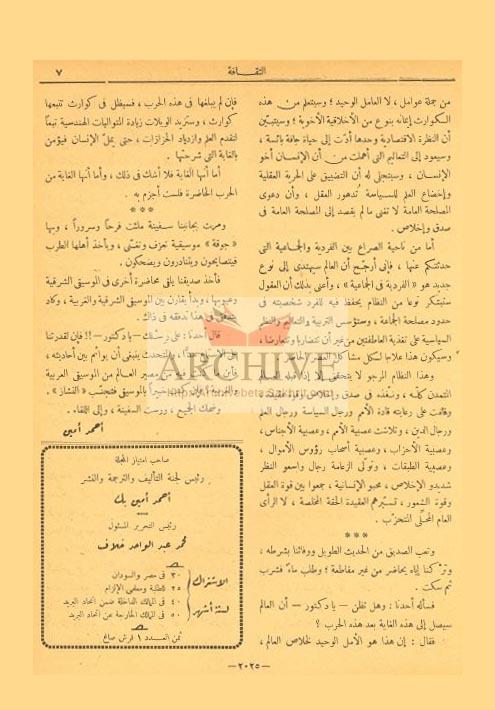 الثقافة
٧
من جملة عوامل ، لا العامل الوحيد ؛ وسيتعلم من هذه
الكوارث إيمانه بنوع من الأخلاقية الأخوية ؛ وسيتبين
أن النظرة الاقتصادية وحدها أدّت إلى حياة جافة بائسة ،
وسيعود إلى التعاليم التي أهملت من أن الإنسان أخو
الإنسان ، وسيتجلى له أن التضييق على الحرية العقلية
وإخضاع العلم للسياسة تُدهور العقل ، وأن دعوى
المصلحة العامة لا تغني ما لم يقصد إلى المصلحة العامة في
صدق وإخلاص .
أما من ناحية الصراع بين الفردية والجماعية التي
حدثتكم عنها ، فإني أرجّح أن العالم سيهتدي إلى نوع
جديد هو « الفردية في الجماعية » ، وأعني بذلك أن العقول
ستبتكر نوعا من النظام يحفظ فيه للفرد شخصيته في
حدود مصلحة الجماعة ، وستؤسس التربية والتعاليم والنظر
السياسية على تغذية العاطفتين من غير أن تتضاربا وتتعارضا ،
وسيكون هذا علاجا لكل مشاكل العصر الحاضر
وهذا النظام المرجو لا يتحقق إلا إذا قبله العالم
المتمدن كله ، ونفّذه في صدق وإخلاص
وقامت على رعايته قادة الأمم ورجال السياسة ورجال العلم
ورجال الدين ، وتلاشت عصبية الأمم ، وعصبية الأجناس ،
وعصبية الأحزاب ، وعصبية أصحاب رؤوس الأموال ،
وعصبية الطبقات ، وتولّى الزعامة رجال واسعو النظر
شديدو الإخلاص ، محبو الإنسانية ، جمعوا بين قوة العقل
وقوة الشعور ، تسيّرهم العقيدة الحقة المخلصة ، لا الرأى
العام المحلّي المتحزّب .
***
وتعب الصديق من الحديث الطويل ووفائنا بشرطه ،
وتركنا إياه يحاضر من غير مقاطعة ؛ وطلب ماء فشرب
ثم سكت .
فسأله أحدنا : وهل تظن — يا دكتور — أن العالم
سيصل إلى هذه الغاية بعد هذه الحرب ؟
فقال : إن هذا هو الأمل الوحيد لخلاص العالم ،
فإن لم يبلغها في هذه الحرب ، فسيظل في كوارث تتبعها
الكوارث ، وستزيد الويلات زيادة المتواليات الهندسية تبعًا
لتقدم العلم وازدياد الحزازات ، حتى يملّ الإنسان فيؤمن
بالغاية التي شرحتها .
أما أنها الغاية فلا أشك في ذلك ، وأما أنها الغاية من
الحرب الحاضرة فلست أجزم به .
***
ومرت بجانبنا سفينة ملئت فرحاً وسروراً ، وبها
« جوقة » موسيقية تعزف وتغنّي ، ويأخذ أهلها الطرب
فيتصايحون ويتنادرون ويضحكون .
فأخذ صديقنا يلقي محاضرة أخرى في الموسيقى الشرقية
وعيوبها ، وبدأ يقارن بين الموسيقى الشرقية والغربية ، وكاد
يتدفق في هذا تدفقه في ذاك .
قال أحدنا : على رسلك — يا دكتور — !! فإن لقدرتنا
والمتحدث ينبغي أن يوائم بين أحاديثه ،
وأين ومصير العالم من الموسيقى العربية
والغربية بالموسيقى فتجنّب « النشاز » .
وضحك الجميع ، ورست السفينة ، وإلى اللقاء .
أحمد أمين
صاحب امتياز المجلة
رئيس لجنة التأليف والترجمة والنشر
أحمد أمين بك
رئيس التحرير المسئول
محمد عبد الواحد خلاف
الاشتراك لستة أشهر
٣٠ في مصر والسودان
٢٥ للطلبة ومعلمي الإلزام
٤٠ في الممالك الداخلة ضمن اتحاد البريد
٥٠ في الممالك الخارجة عن اتحاد البريد
ثمن العدد ١ قرش صاغ
— ٢٠٢٥ —
ARCHIVE